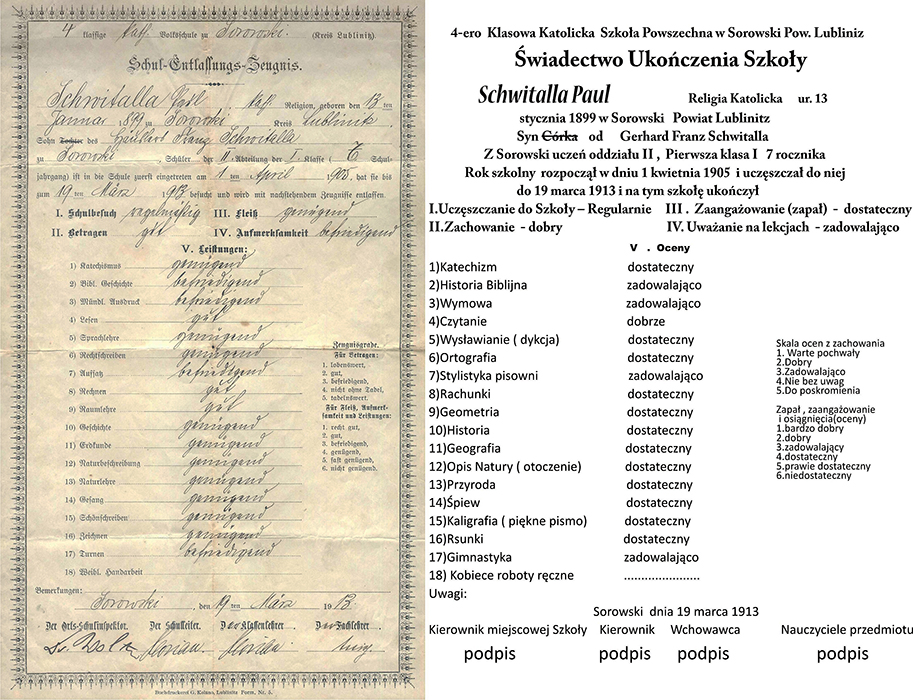 4 klassige kath. Volksschule zu Sorowski. (Kreis Lublinitz)
Schul-Entlassungs-Zeugnis.
Schwitalla Paul, kath. Religion, geboren den 13 ten
Januar 1899 zu Sorowski Kreis Lublinitz
Sohn Tochter des Franz Schwitalla
zu Sorowski, Schüler der II Abteilung der I. Klasse ( Schul-
jahrgang) ist in die Schule zuerst eingetreten am 1 ten April 1905, hat sie bis
zum 19 ten März 1913 besucht und wird mit nachstehendem Zeugnisse entlassen
I. Schulbesuch regelmäßig III. Fleiß genügend
II. Betragen gut IV. Aufmerksamkeit befriedigend
V. Leistungen:
1) Katechismus genügend
2) Bibl. Geschichte befriedigend
3) Mündl. Ausdruck befriedigend
4) Lesen gut
5) Sprachlehre genügend
6) Rechtschreiben genügend
7) Aufsatz befriedigend
8) Rechnen gut
9) Raumlehre gut
10) Geschichte genügend
11) Erdkunde genügend
12) Naturbeschreibung genügend
13) Naturlehre genügend
14) Gesang genügend
15) Schönschreiben genügend
16) Zeichnen genügend
17) Turnen befriedigend
18) Weibl. Handarbeit
Zeugnisgrade.
Für Betragen:
1. lobenswert,
2. gut,
3. befriedigend,
4. nicht ohne Tadel,
5. tadelnswert.
Für Fleiß, Aufmerk-
samkeit und Leistungen:
1. recht gut,
2. gut,
3. befriedigend,
4. genügend,
5. fast genügend,
6. nicht genügend.
Bemerkungen:
Sorowski, den 19 ten März 1913.
Der Orts-Schulinspektor. Der Schulleiter. Der Klassenlehrer. Der Fachlehrer.
Buchdruckerei G. Kolano, Lublinitz Form. Nr. 5.
4-ero Klasowa Katolicka Szkoła Powszechna w Sorowski Pow. Lubliniz
Świadectwo Ukończenia Szkoły
Schwitalla Paul Religia Katolicka ur. 13
stycznia 1899 w Sorowski Powiat Lublinitz
Syn Córka od Gerhard Franz Schwitalla
Z Sorowski uczeń oddziału II , Pierwsza klasa I 7 rocznika
Rok szkolny rozpoczął w dniu 1 kwietnia 1905 i uczęszczał do niej
do 19 marca 1913 i na tym szkołę ukończył
I.Uczęszczanie do Szkoły – Regularnie III . Zaangażowanie (zapał) - dostateczny
II.Zachowanie - dobry IV. Uważanie na lekcjach - zadowalająco
V . Oceny
1)Katechizm dostateczny
2)Historia Biblijna zadowalająco
3)Wymowa zadowalająco
4)Czytanie dobrze
5)Wysławianie ( dykcja) dostateczny
6)Ortografia dostateczny
7)Stylistyka pisowni zadowalająco
8)Rachunki dostateczny
9)Geometria dostateczny
10)Historia dostateczny
11)Geografia dostateczny
12)Opis Natury ( otoczenie) dostateczny
13)Przyroda dostateczny
14)Śpiew dostateczny
15)Kaligrafia ( piękne pismo) dostateczny
16)Rsunki dostateczny
17)Gimnastyka zadowalająco
18) Kobiece roboty ręczne ......................
Skala ocen z zachowania
1. Warte pochwały
2.Dobry
3.Zadowalająco
4.Nie bez uwag
5.Do poskromienia
Zapał , zaangażowanie
i osiągnięcia(oceny)
1.bardzo dobry
2.dobry
3.zadowalający
4.dostateczny
5.prawie dostateczny
6.niedostateczny
Uwagi:
Sorowski dnia 19 marca 1913
Kierownik miejscowej Szkoły Kierownik Wchowawca Nauczyciele przedmiotu
podpis podpis podpis podpis